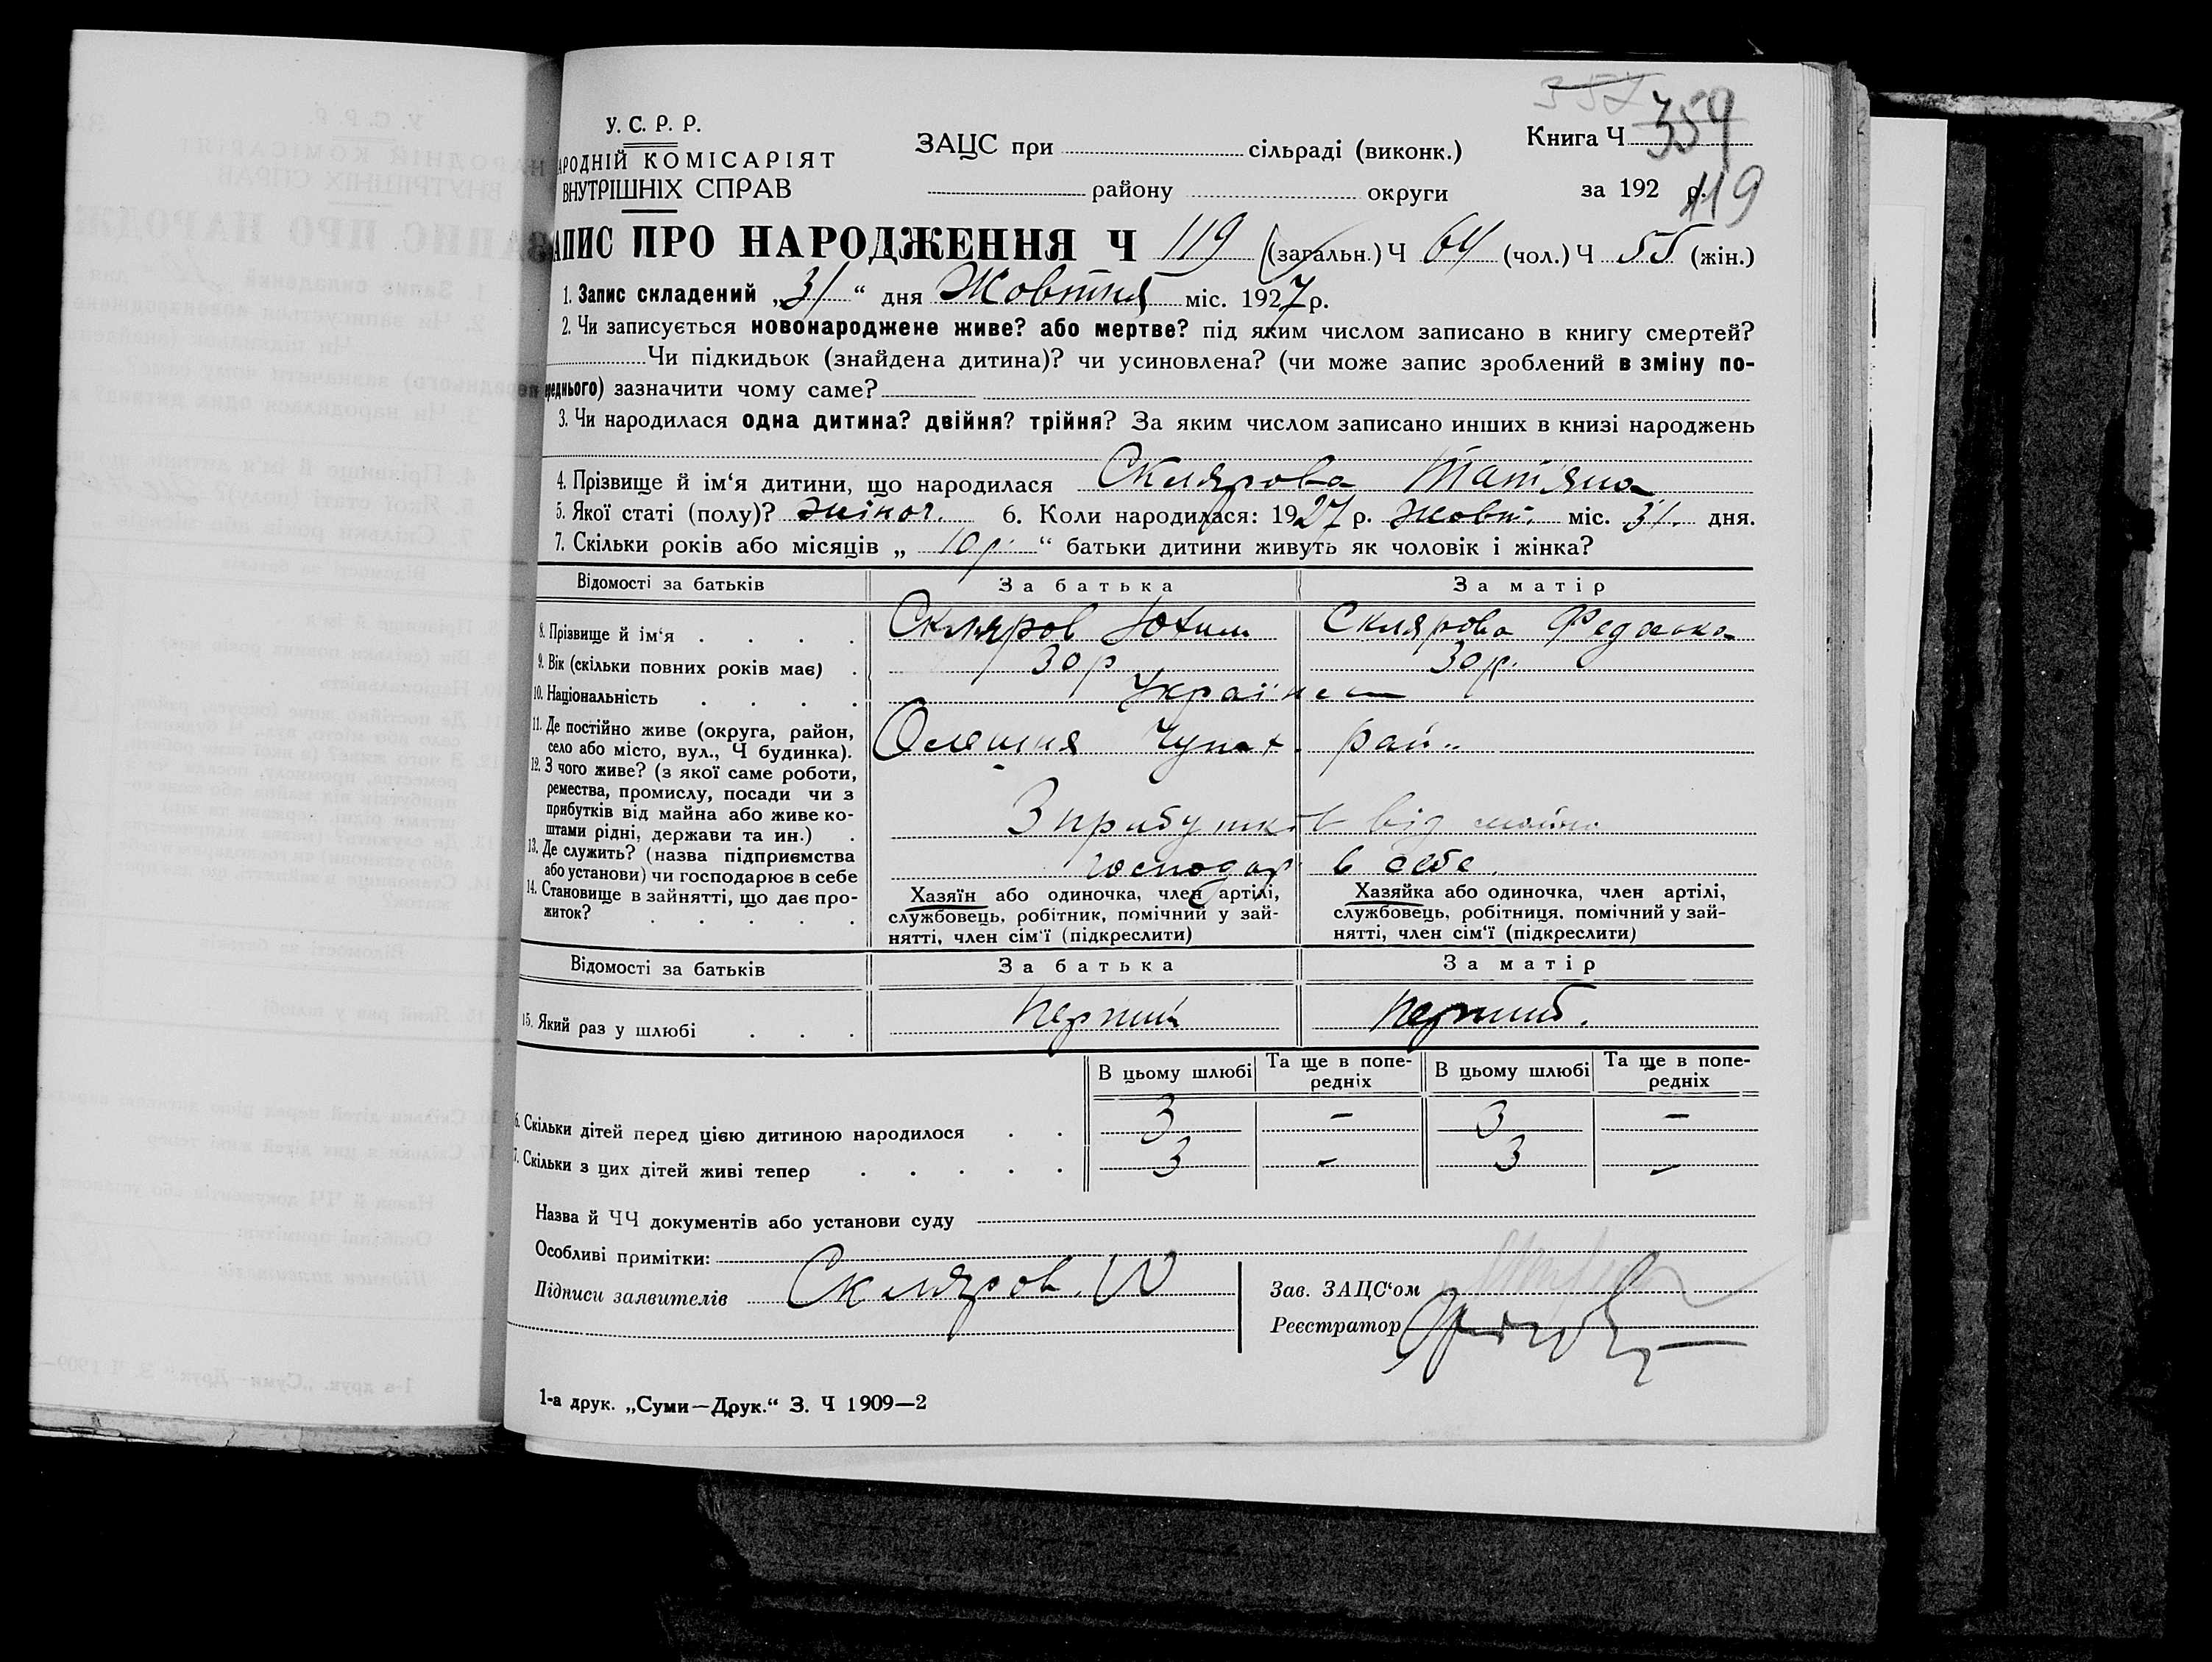 357 359
У. С. Р. Р.
АРОДНІЙ КОМІСАРІЯТ
ВНУТРІШНІХ СПРАВ
ЗАЦС при сільраді (виконк.)
району округи
Книга Ч
за 192 р. 119
АПИС ПРО НАРОДЖЕННЯ Ч 119 (загальн.) Ч 64 (чол.) Ч 55 (жін.)
1. Запис складений „31“ дня Жовтня міс. 1927 р.
2. Чи записується новонароджене живе? або мертве? під яким числом записано в книгу смертей?
Чи підкидьок (знайдена дитина)? чи усиновлена? (чи може запис зроблений в зміну по-
реднього) зазначити чому саме?
3. Чи народилася одна дитина? двійня? трійня? За яким числом записано инших в книзі народжень
4. Прізвище й ім‘я дитини, що народилася Склярова Тат‘яна
5. Якої статі (полу)? жіноч. 6. Коли народилася: 1927 р. жовт. міс. 31. дня.
7. Скільки років або місяців „ 10 р. “ батьки дитини живуть як чоловік і жінка?
Відомості за батьків За батька За матір
8. Прізвище й ім‘я . . . . Скляров Юхим Склярова Федоська
9. Вік (скільки повних років має) . 30 р 30 р.
10. Національність . . . . Українец
11. Де постійно живе (округа, район,
село або місто, вул., Ч будинка). Олешня Чупах. рай..
12. З чого живе? (з якої саме роботи,
ремества, промислу, посади чи з
прибутків від майна або живе ко-
штами рідні, держави та ин.) . З прибутків від майна
13. Де служить? (назва підприємства
або установи) чи господарює в себе господар в себе.
14. Становище в зайнятті, що дає про-
житок? . . . .
Хазяїн або одиночка, член артілі,
службовець, робітник, помічний у зай-
нятті, член сім‘ї (підкреслити)
Хазяйка або одиночка, член артілі,
службовець, робітниця, помічний у зай-
нятті, член сім‘ї (підкреслити)
Відомості за батьків За батька За матір
15. Який раз у шлюбі . . . Перший Перший.
В цьому шлюбі Та ще в попе-
редніх В цьому шлюбі Та ще в попе-
редніх
6. Скільки дітей перед цією дитиною народилося . . 3 – 3 –
7. Скільки з цих дітей живі тепер . . . . . 3 – 3 –
Назва й ЧЧ документів або установи суду
Особливі примітки:
Підписи заявителів Скляров. Ю
Зав. ЗАЦС‘ом
Реєстратор
1-а друк. „Суми—Друк.“ З. Ч 1909—2